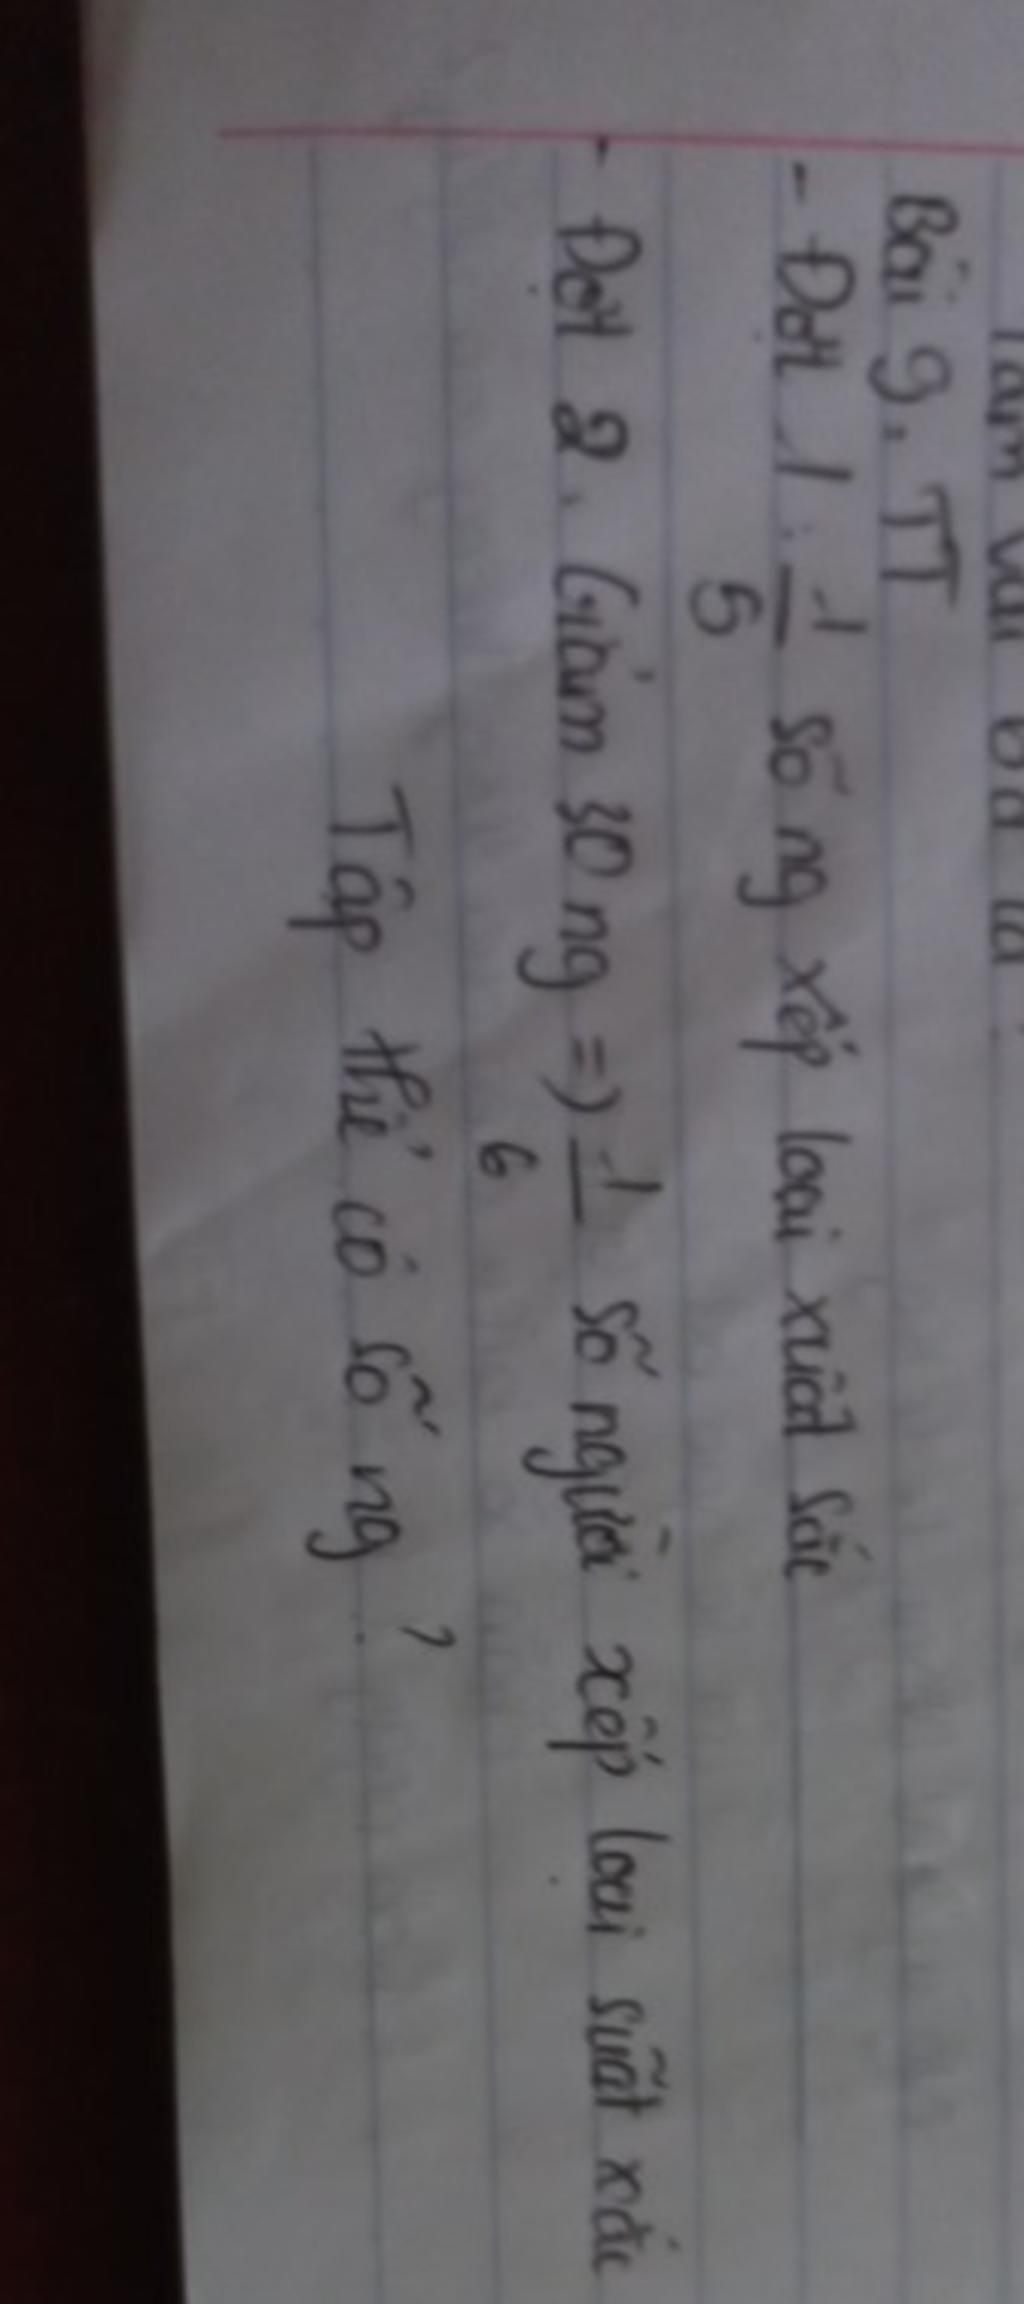 Bài 9. TT
- Đợt 1: 1/5 số ng xếp loại xuất sắc
- Đợt 2. Giảm 30 ng => 1/6 số người xếp loại suất xắc
Tập thể có số ng ?